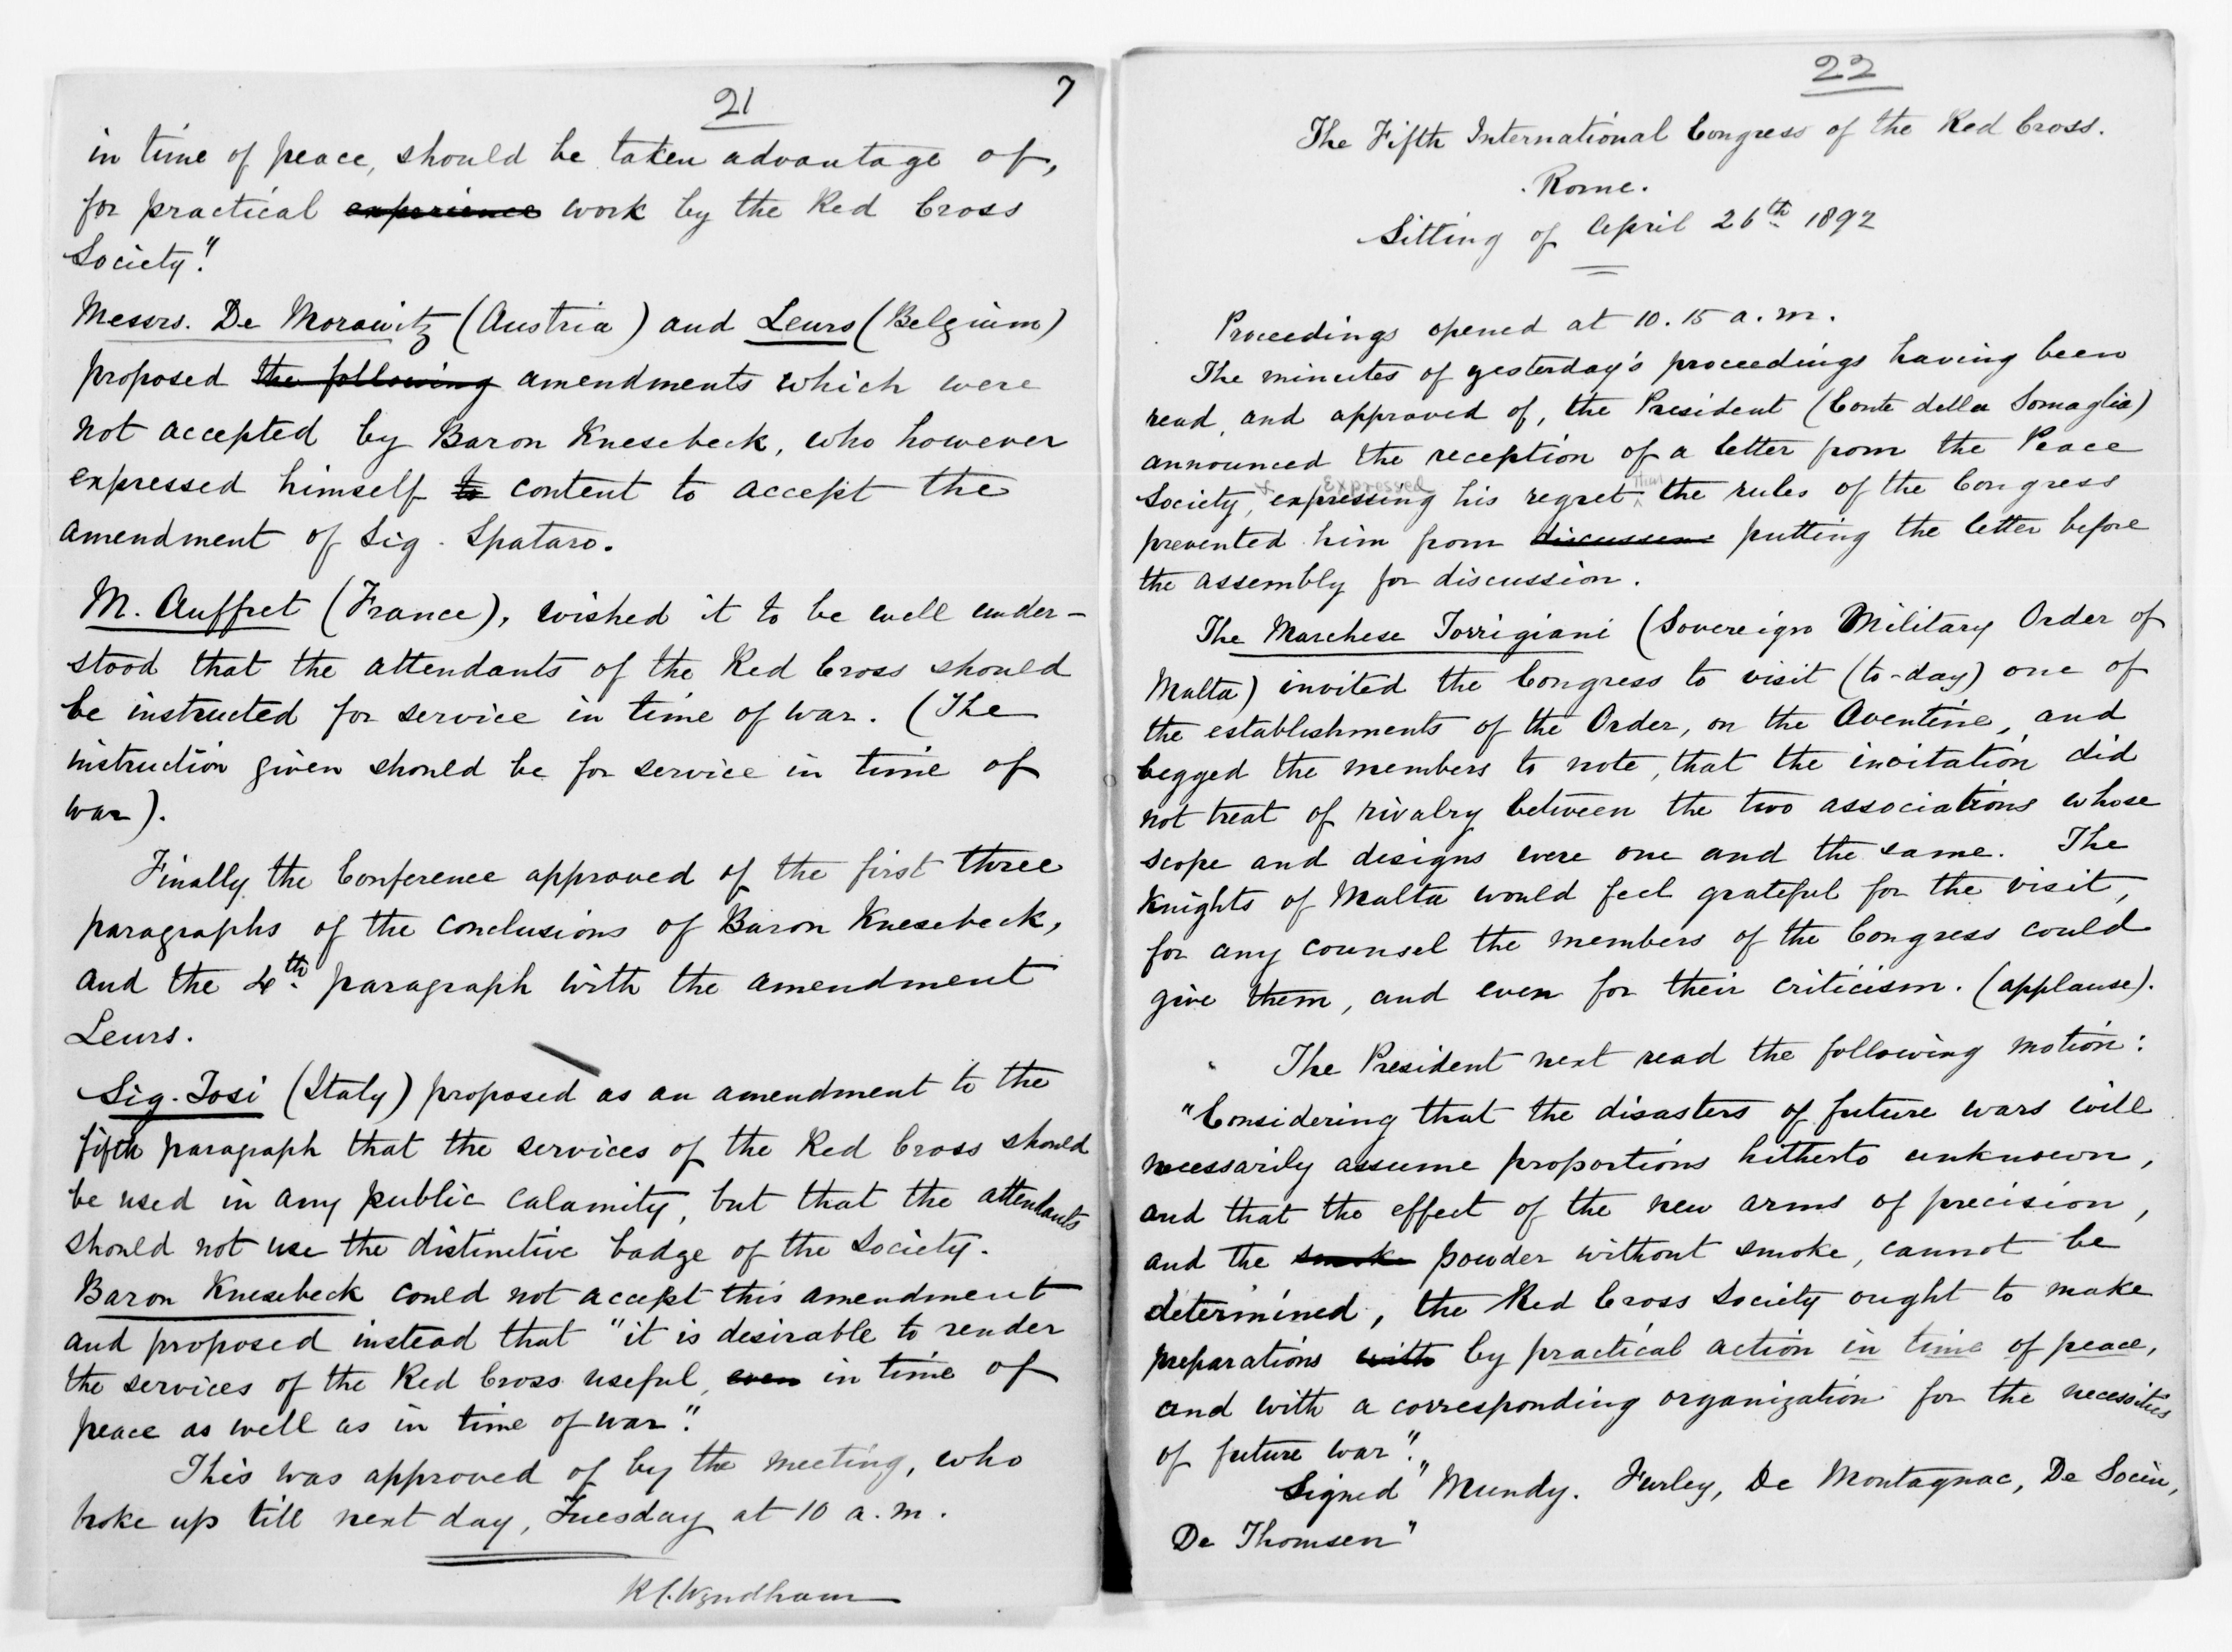 21
7
in time of peace, should be taken advantage of,
for practical experience work by the Red Cross
Society."
Messrs. De Morawitz (Austria) and Leurs (Belgium)
proposed the following amendments which were
not accepted by Baron Knesebeck, who however
expressed himself to content to accept the
amendment of Sig. Spataro.
M. Auffret (France), wished it to be well under-
stood that the attendants of the Red Cross should
be instructed for service in time of war. (The
instruction given should be for service in time of
war).
Finally the Conference approved of the first three
paragraphs of the conclusions of Baron Knesebeck,
and the 4th paragraph with the amendment
Leurs.
Sig. Tosi (Italy) proposed as an amendment to the
fifth paragraph that the services of the Red Cross should
be used in any public calamity, but that the attendants
should not use the distinctive badge of the Society.
Baron Knesebeck could not accept this amendment
and proposed instead that "it is desirable to render
the services of the Red Cross useful, even in time of
peace as well as in time of war".
This was approved of by the meeting, who
broke up till next day, Tuesday at 10 a.m.
R.C. Wyndham
22
The Fifth International Congress of the Red Cross.
. Rome.
Sitting of April 26th 1892
Proceedings opened at 10.15 a.m.
The minutes of yesterday's proceedings having been
read, and approved of, the President (Conte della Somaglia)
announced the reception of a letter from the Peace
Expressed
Society, & expressing his regret that the rules of the Congress
prevented him from discussion putting the letter before
the assembly for discussion.
The Marchese Torrigiani (Sovereign Military Order of
Malta) invited the Congress to visit (to-day) one of
the establishments of the Order, on the Aventine, and
begged the members to note, that the invitation did
not treat of rivalry between the two associations whose
scope and designs were one and the same. The
Knights of Malta would feel grateful for the visit,
for any counsel the members of the Congress could
give them, and even for their criticism. (applause).
The President next read the following motion:
"Considering that the disasters of future wars will
necessarily assume proportions hitherto unknown,
and that the effect of the new arms of precision,
and the smoke powder without smoke, cannot be
determined, the Red Cross Society ought to make
preparations with by practical action in time of peace,
and with a corresponding organization for the necessities
of future war".
Signed "Mundy. Furley, De Montagnac, De Socin,
De Thomsen"